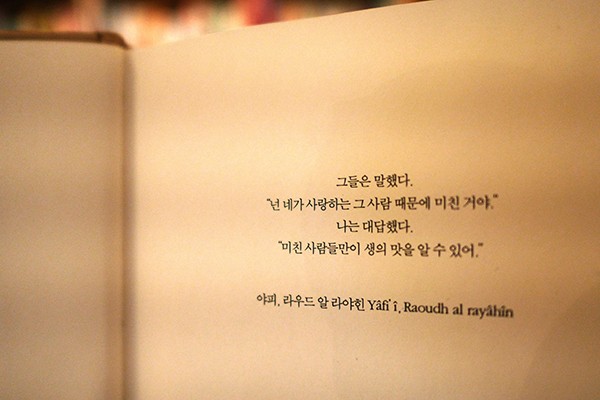 그들은 말했다.
"넌 네가 사랑하는 그 사람 때문에 미친 거야."
나는 대답했다.
"미친 사람들만이 생의 맛을 알 수 있어."
야피, 라우드 알 라야힌 Yâfi' î, Raoudh al rayâhîn